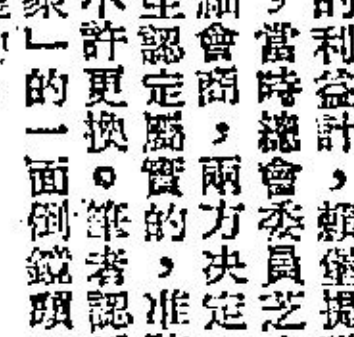 利益計，賴僅提
當時總會委員芝
會商，兩方決定
認定屬實的，准
許更換。筆者認
」的一面倒鏡頭